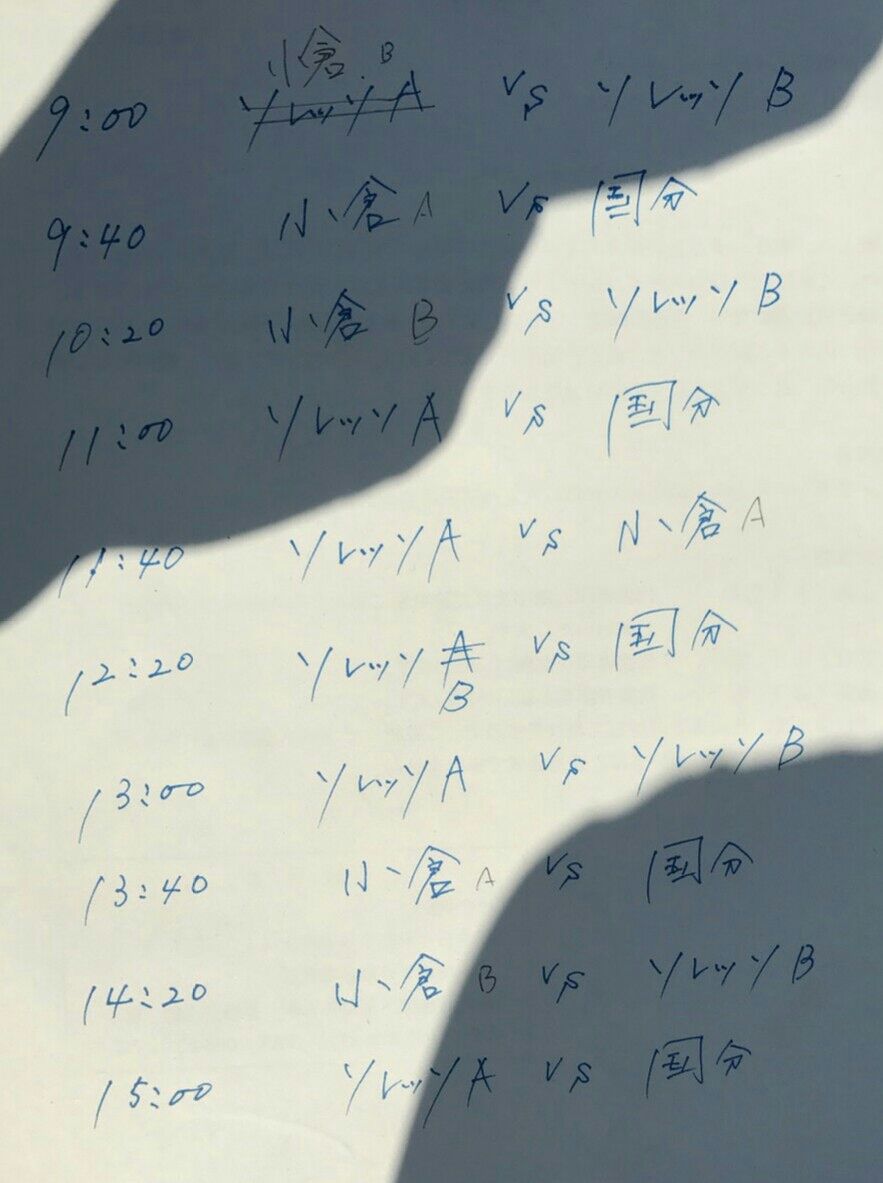 小倉.B
9:00 ソレッソA vs ソレッソB
9:40 小倉A vs 国分
10:20 小倉 B vs ソレッソB
11:00 ソレッソA vs 国分
11:40 ソレッソA vs 小倉A
12:20 ソレッソA vs 国分
B
13:00 ソレッソA vs ソレッソB
13:40 小倉A vs 国分
14:20 小倉 B vs ソレッソB
15:00 ソレッソA vs 国分